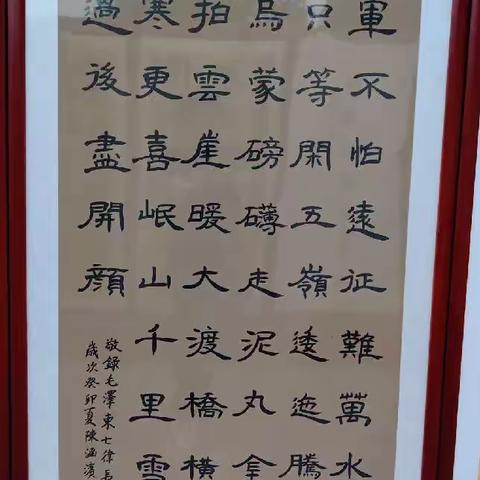 軍不怕遠征難萬水
只等閑五嶺逶迤騰
烏蒙磅礴走泥丸金
拍雲崖暖大渡橋橫
寒更喜岷山千里雪
過後盡開顏
敬錄毛澤東七律長
歲次癸卯夏陳涵